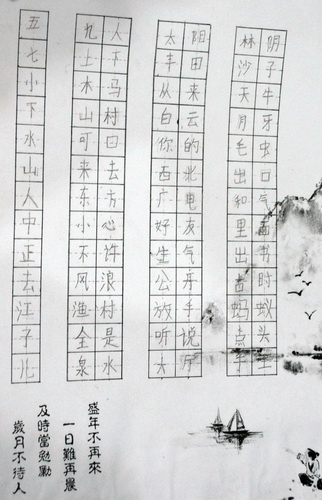 五
七
小
下
水
山
人
中
正
去
江
子
儿
九人
土下
木马
山村
可口
来去
东方
小心
不许
风浪
渔村
全是
泉水
太阳
丰田
从来
白云
你的
西北
广电
好友
生气
公平
放手
听说
大厅
林阴
沙子
天牛
月牙
毛虫
出口
和气
里面
出书
古时
蚂蚁
点头
手
盛年不再來
一日難再晨
及時當勉勵
歲月不待人